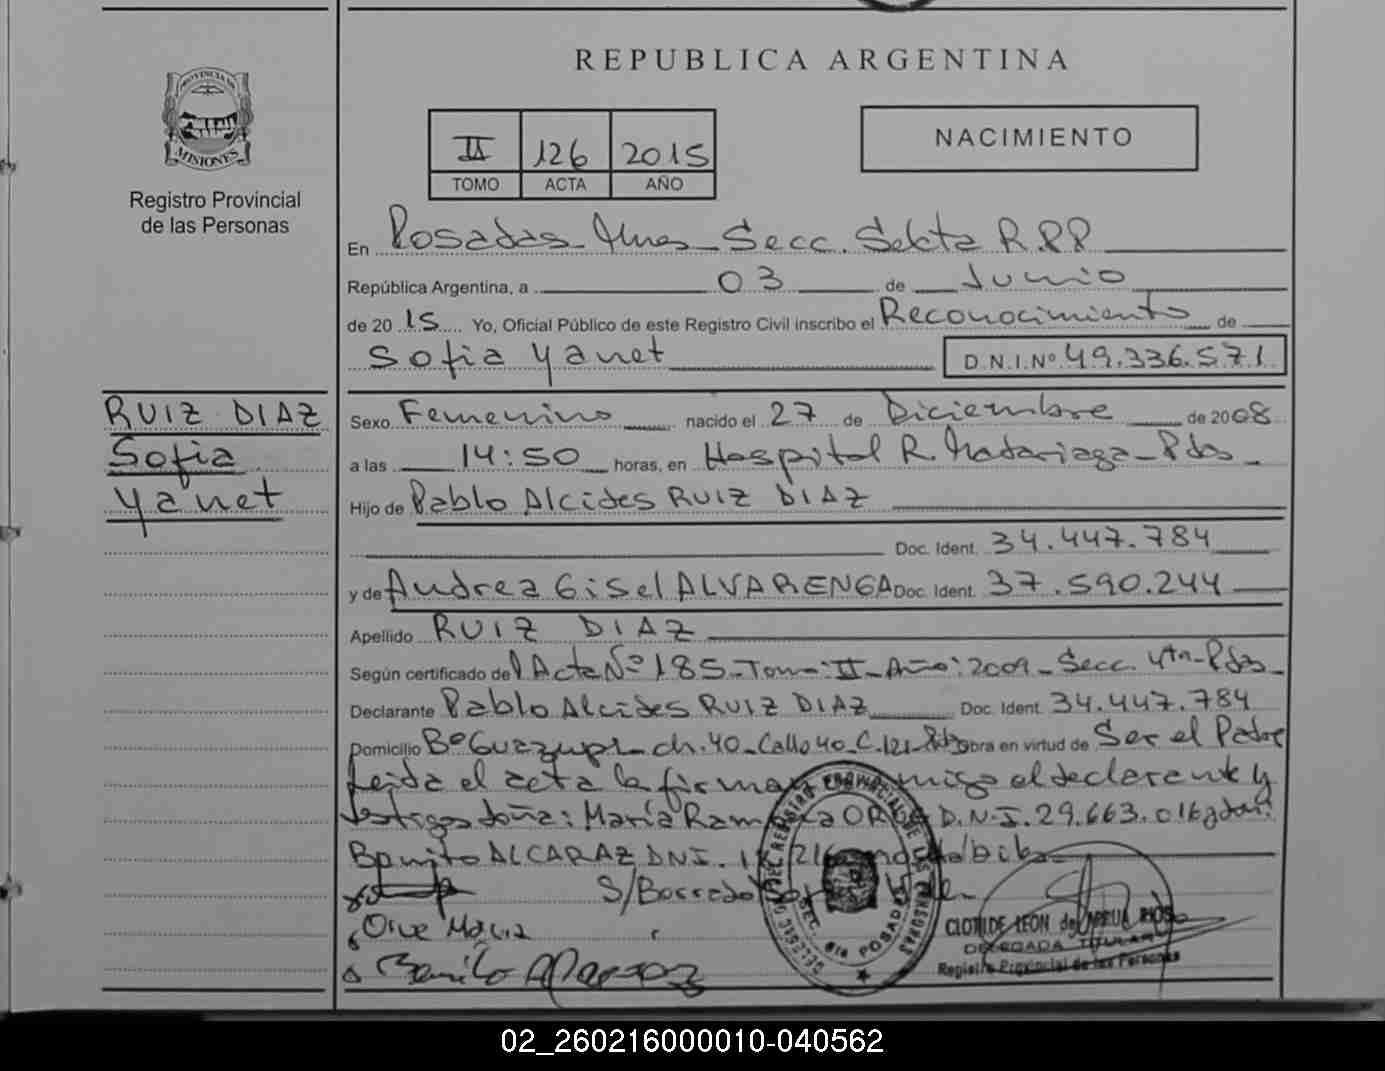 REPUBLICA ARGENTINA
PROVINCIA DE
MISIONES
Registro Provincial
de las Personas
II 126 2015
TOMO ACTA AÑO
NACIMIENTO
En Posadas Mnes Secc. Sekta R.P.P
República Argentina, a 03 de Junio
de 2015 Yo, Oficial Público de este Registro Civil inscribo el Reconocimiento de
Sofia Yanet D.N.I.Nº 49.336.571
RUIZ DIAZ
Sofia
Yanet
Sexo Femenino nacido el 27 de Diciembre de 2008
a las 14:50 horas, en Hospital R. Madariaga - Pdas
Hijo de Pablo Alcides RUIZ DIAZ
Doc. Ident. 34.447.784
y de Andrea Gisel ALVARENGA Doc. Ident. 37.590.244
Apellido RUIZ DIAZ
Según certificado del Acta Nº 185 - Tomo: II - Año: 2009 - Secc. 4ta - Pdas
Declarante Pablo Alcides RUIZ DIAZ Doc. Ident. 34.447.784
Domicilio Bº ch. 40 - Calle 40 - C. 121 - Pdas obra en virtud de Ser el Padre
Leida el acta la firman el declarante y
testigos doña: María D.N.I. 29.663.016 y don:
Benito ALCARAZ DNI.
S/Borrado
Orue Maria
Benito Alcaraz
REGISTRO PROVINCIAL DE LAS PERSONAS
SEC. 6ta POSADAS
CLOTILDE LEON de ABREUA RIOS
DELEGADA TITULAR
Registro Provincial de las Personas
02_260216000010-040562